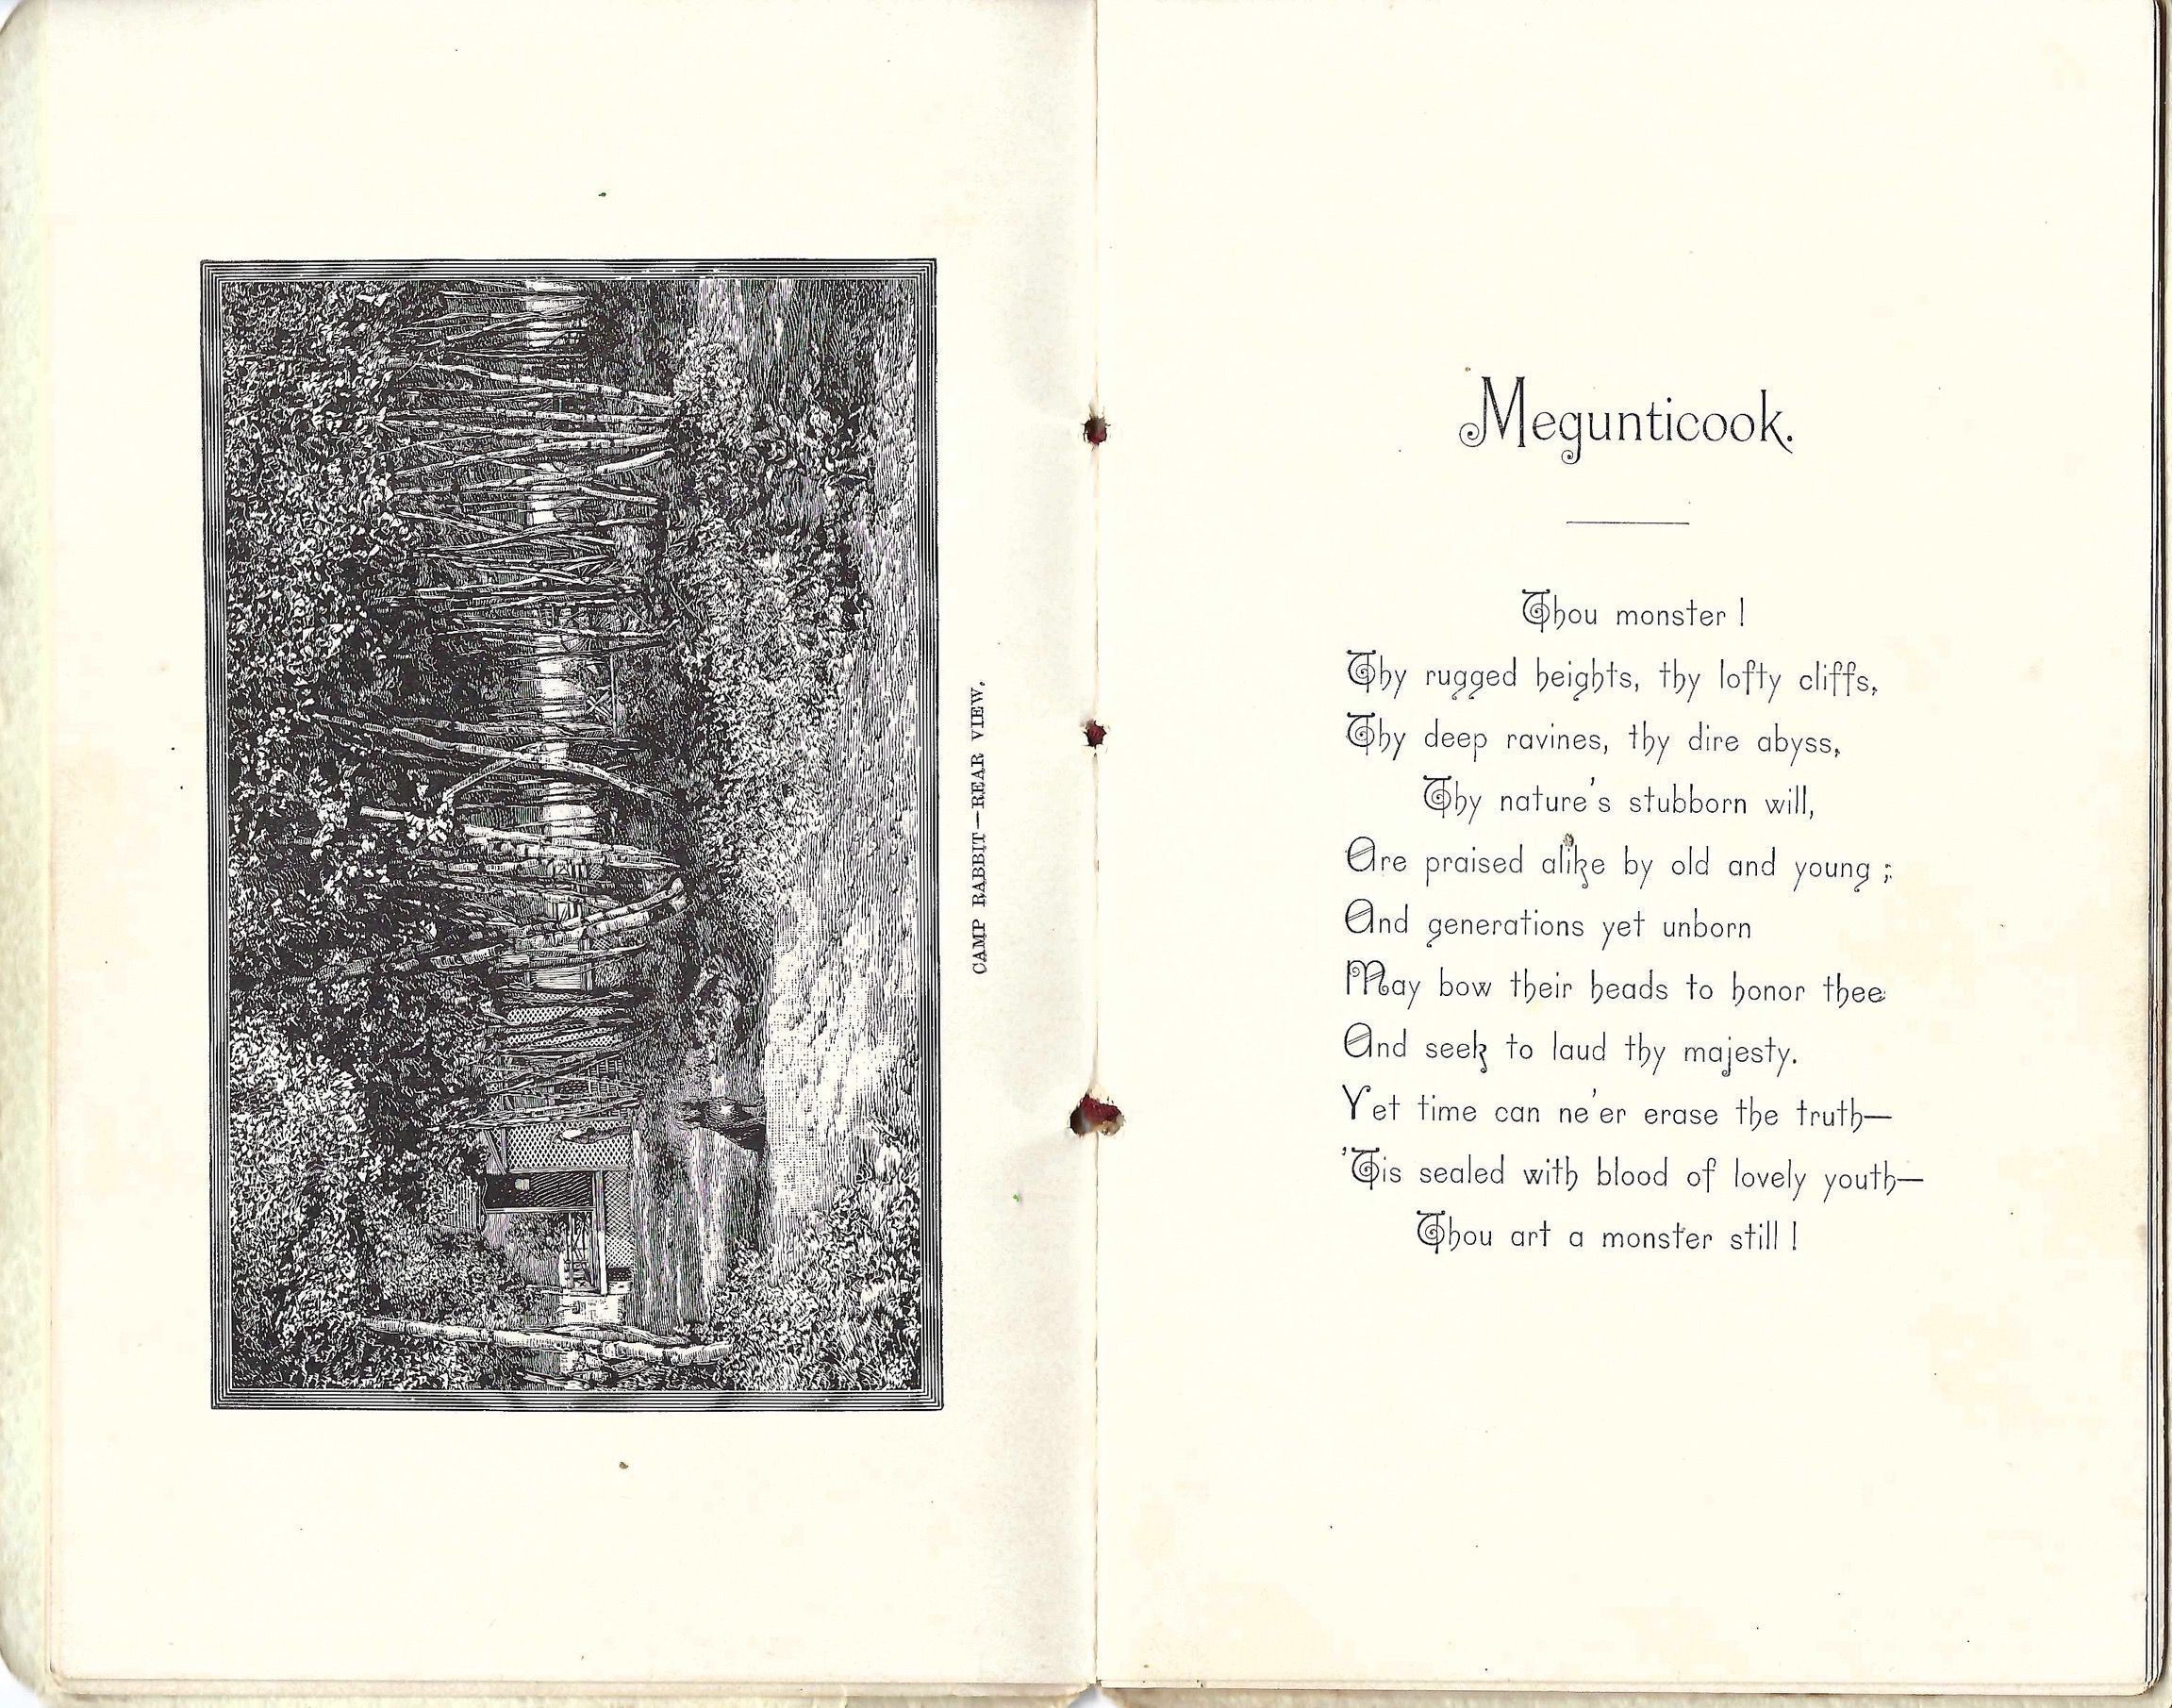 CAMP RABBIT—REAR VIEW.
Megunticook.
Thou monster !
Thy rugged heights, thy lofty cliffs,
Thy deep ravines, thy dire abyss,
Thy nature's stubborn will,
Are praised alike by old and young ;
And generations yet unborn
May bow their heads to honor thee
And seek to laud thy majesty.
Yet time can ne'er erase the truth—
'Tis sealed with blood of lovely youth—
Thou art a monster still !